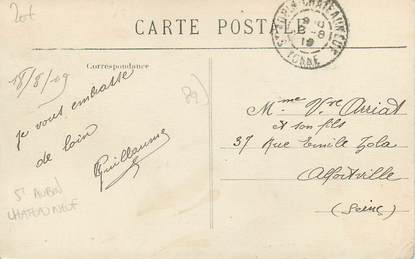 CARTE POSTALE
Correspondance
18/8/09
je vous embrasse
de loin
Guillaume
89
ST AUBIN
CHATEAUNEUF
ST AUBIN CHATEAUNEUF
YONNE
Mme Vve Arriat
et son fils
37 Rue Emile Zola
Alfortville
(Seine)